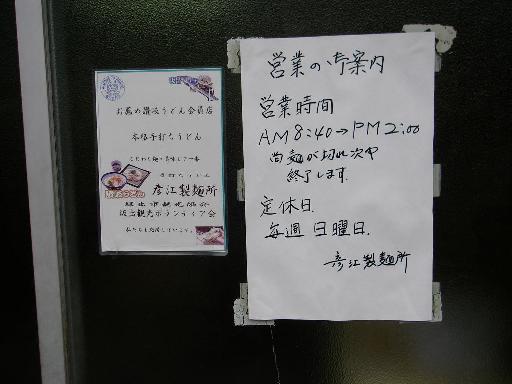 お薦め讃岐うどん会員店
本格手打ちうどん
彦江製麺所
坂出観光ボランティア会
営業のご案内
営業時間
AM8:40→PM2:00
尚麺が切れ次第
終了します
定休日
毎週 日曜日
彦江製麺所